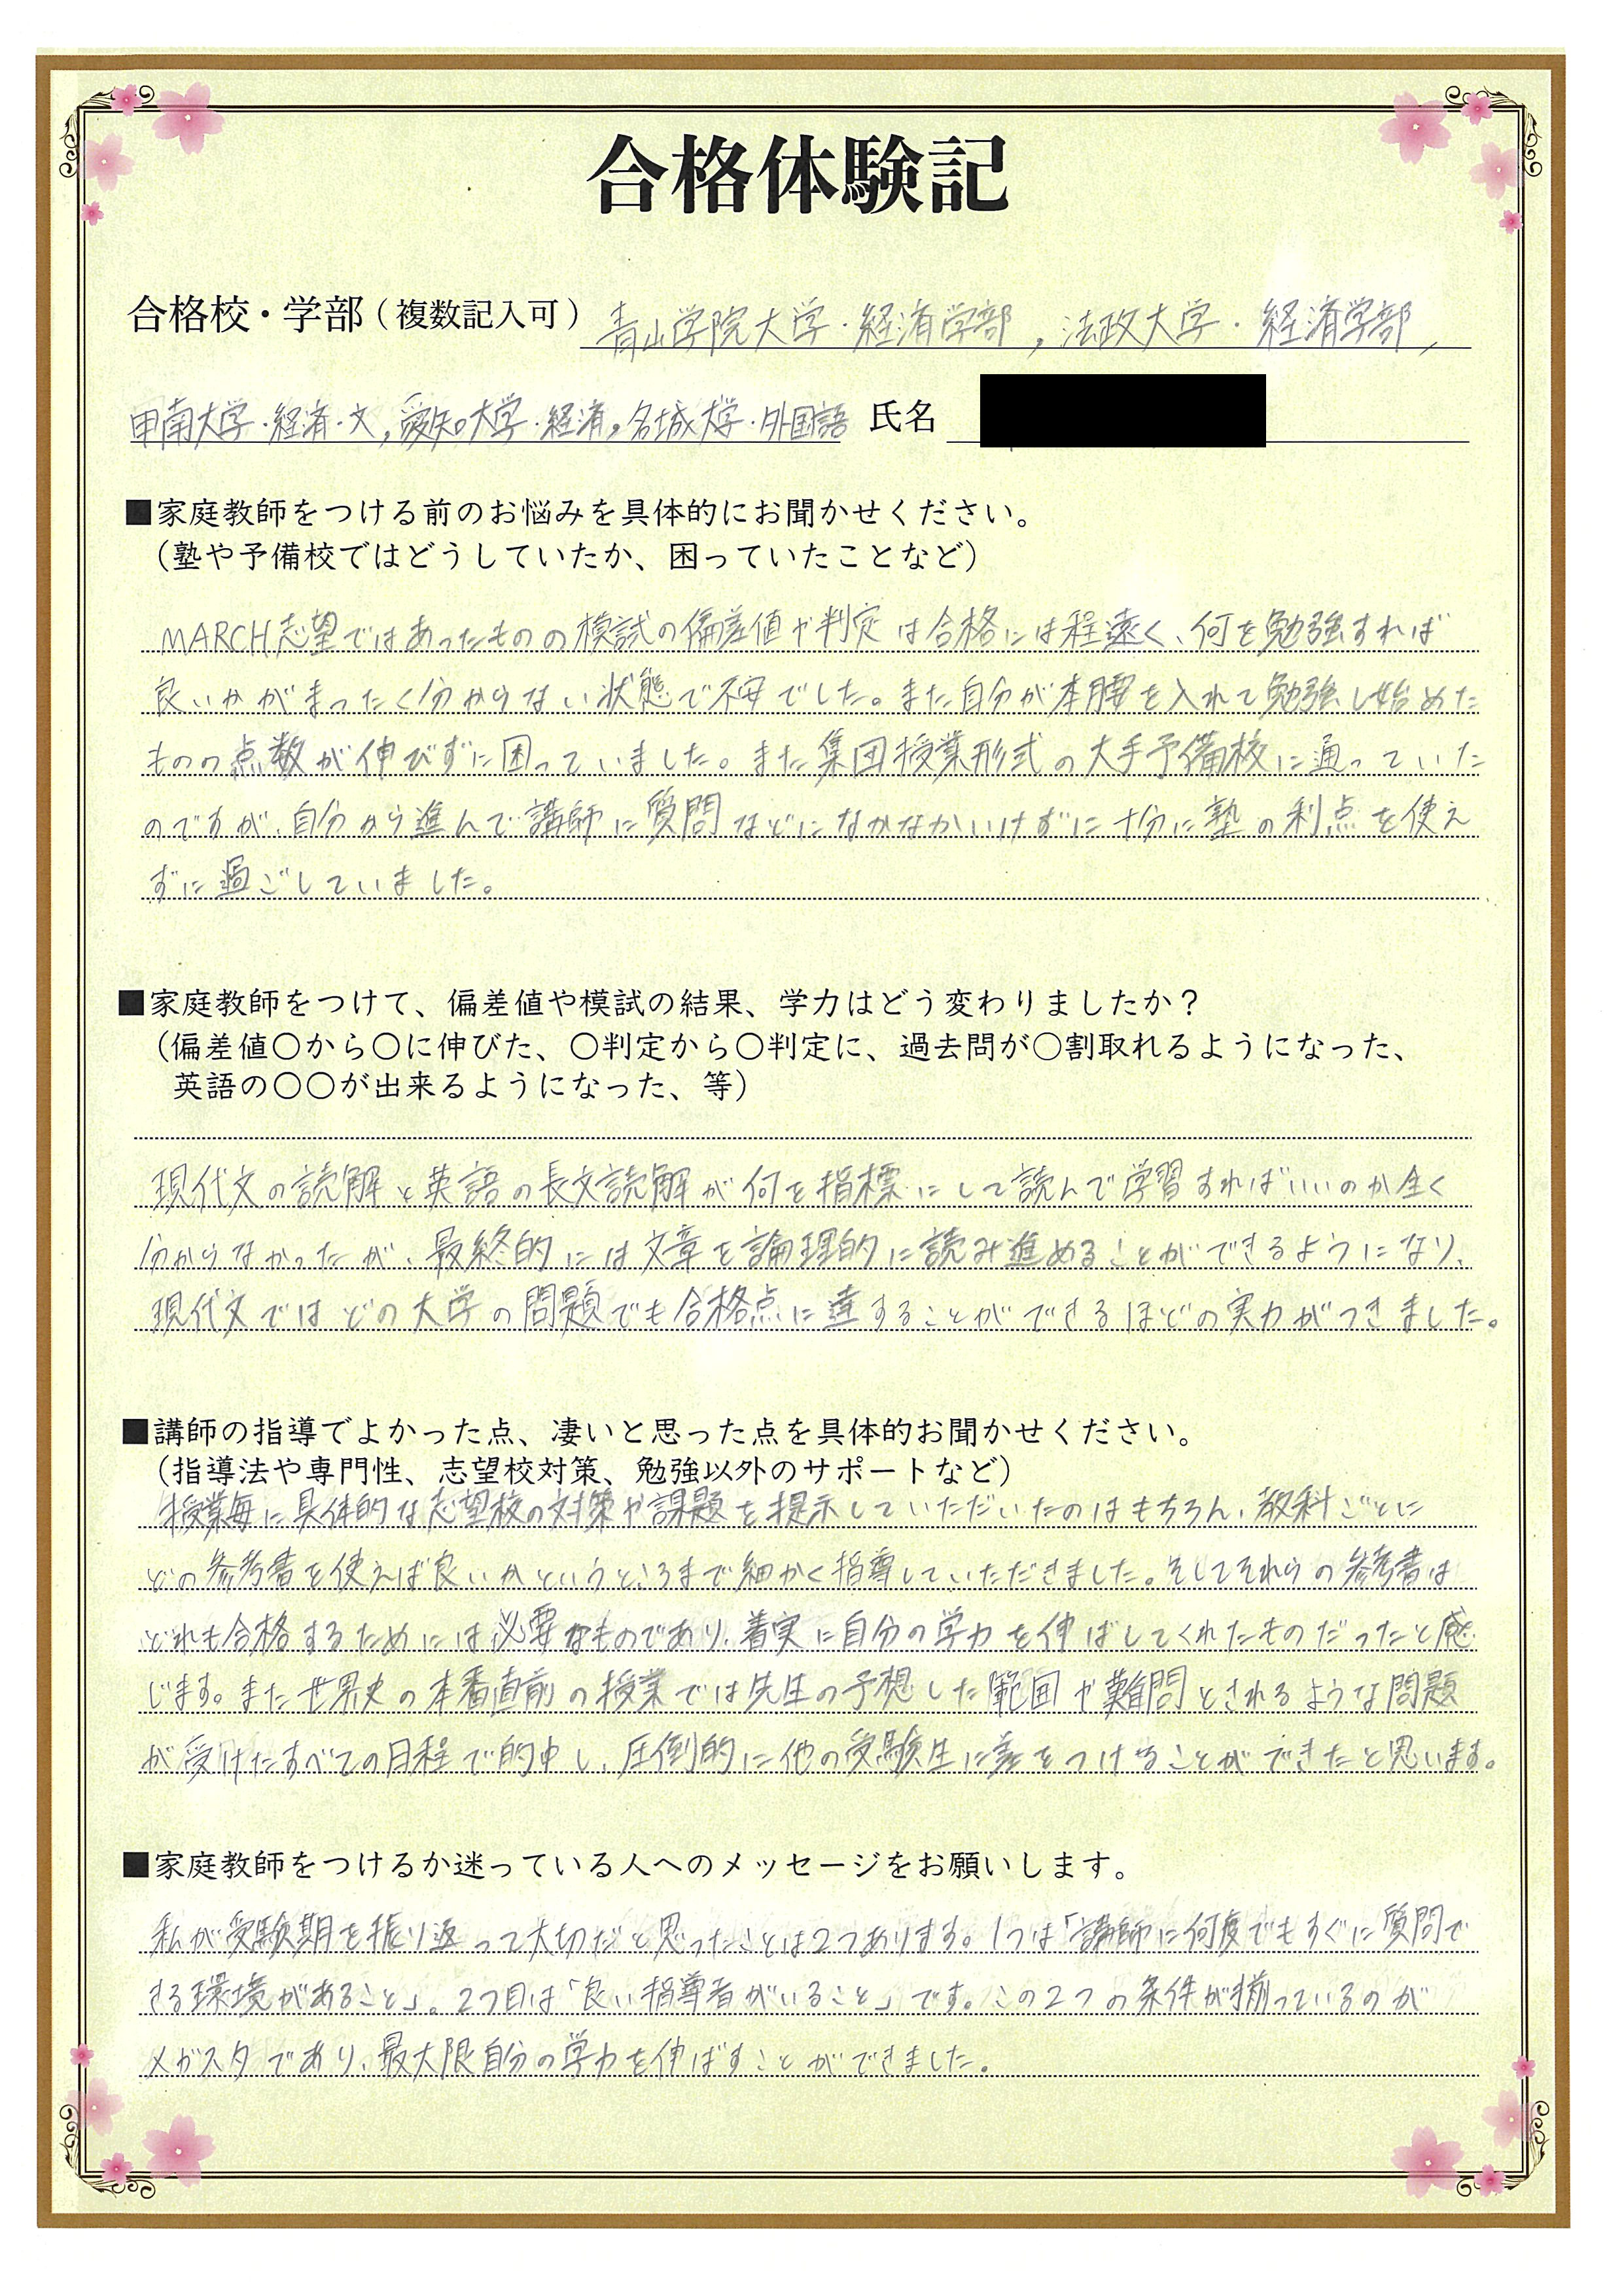 合格体験記
合格校・学部（複数記入可） 青山学院大学・経済学部, 法政大学・経済学部,
甲南大学・経済・文, 愛知大学・経済, 名城大学・外国語 氏名
■家庭教師をつける前のお悩みを具体的にお聞かせください。
（塾や予備校ではどうしていたか、困っていたことなど）
MARCH志望ではあったものの模試の偏差値や判定は合格には程遠く、何を勉強すれば
良いかがまったく分からない状態で不安でした。また自分が本腰を入れて勉強し始めた
ものの点数が伸びずに困っていました。また集団授業形式の大手予備校に通っていた
のですが、自分から進んで講師に質問などになかなかいけずに十分に塾の利点を使え
ずに過ごしていました。
■家庭教師をつけて、偏差値や模試の結果、学力はどう変わりましたか？
（偏差値〇から〇に伸びた、〇判定から〇判定に、過去問が〇割取れるようになった、
英語の〇〇が出来るようになった、等）
現代文の読解と英語の長文読解が何を指標にして読んで学習すればいいのか全く
分からなかったが、最終的には文章を論理的に読み進めることができるようになり、
現代文ではどの大学の問題でも合格点に達することができるほどの実力がつきました。
■講師の指導でよかった点、凄いと思った点を具体的お聞かせください。
（指導法や専門性、志望校対策、勉強以外のサポートなど）
授業毎に具体的な志望校の対策や課題を提示していただいたのはもちろん、教科ごとに
どの参考書を使えば良いかというところまで細かく指導していただきました。そしてそれらの参考書は
どれも合格するためには必要なものであり、着実に自分の学力を伸ばしてくれたものだったと感
じます。また世界史の本番直前の授業では先生の予想した範囲や難問とされるような問題
が受けたすべての日程で的中し、圧倒的に他の受験生に差をつけることができたと思います。
■家庭教師をつけるか迷っている人へのメッセージをお願いします。
私が受験期を振り返って大切だと思ったことは2つあります。1つは「講師に何度でもすぐに質問で
きる環境があること」。2つ目は「良い指導者がいること」です。この2つの条件が揃っているのが
メガスタであり、最大限自分の学力を伸ばすことができました。